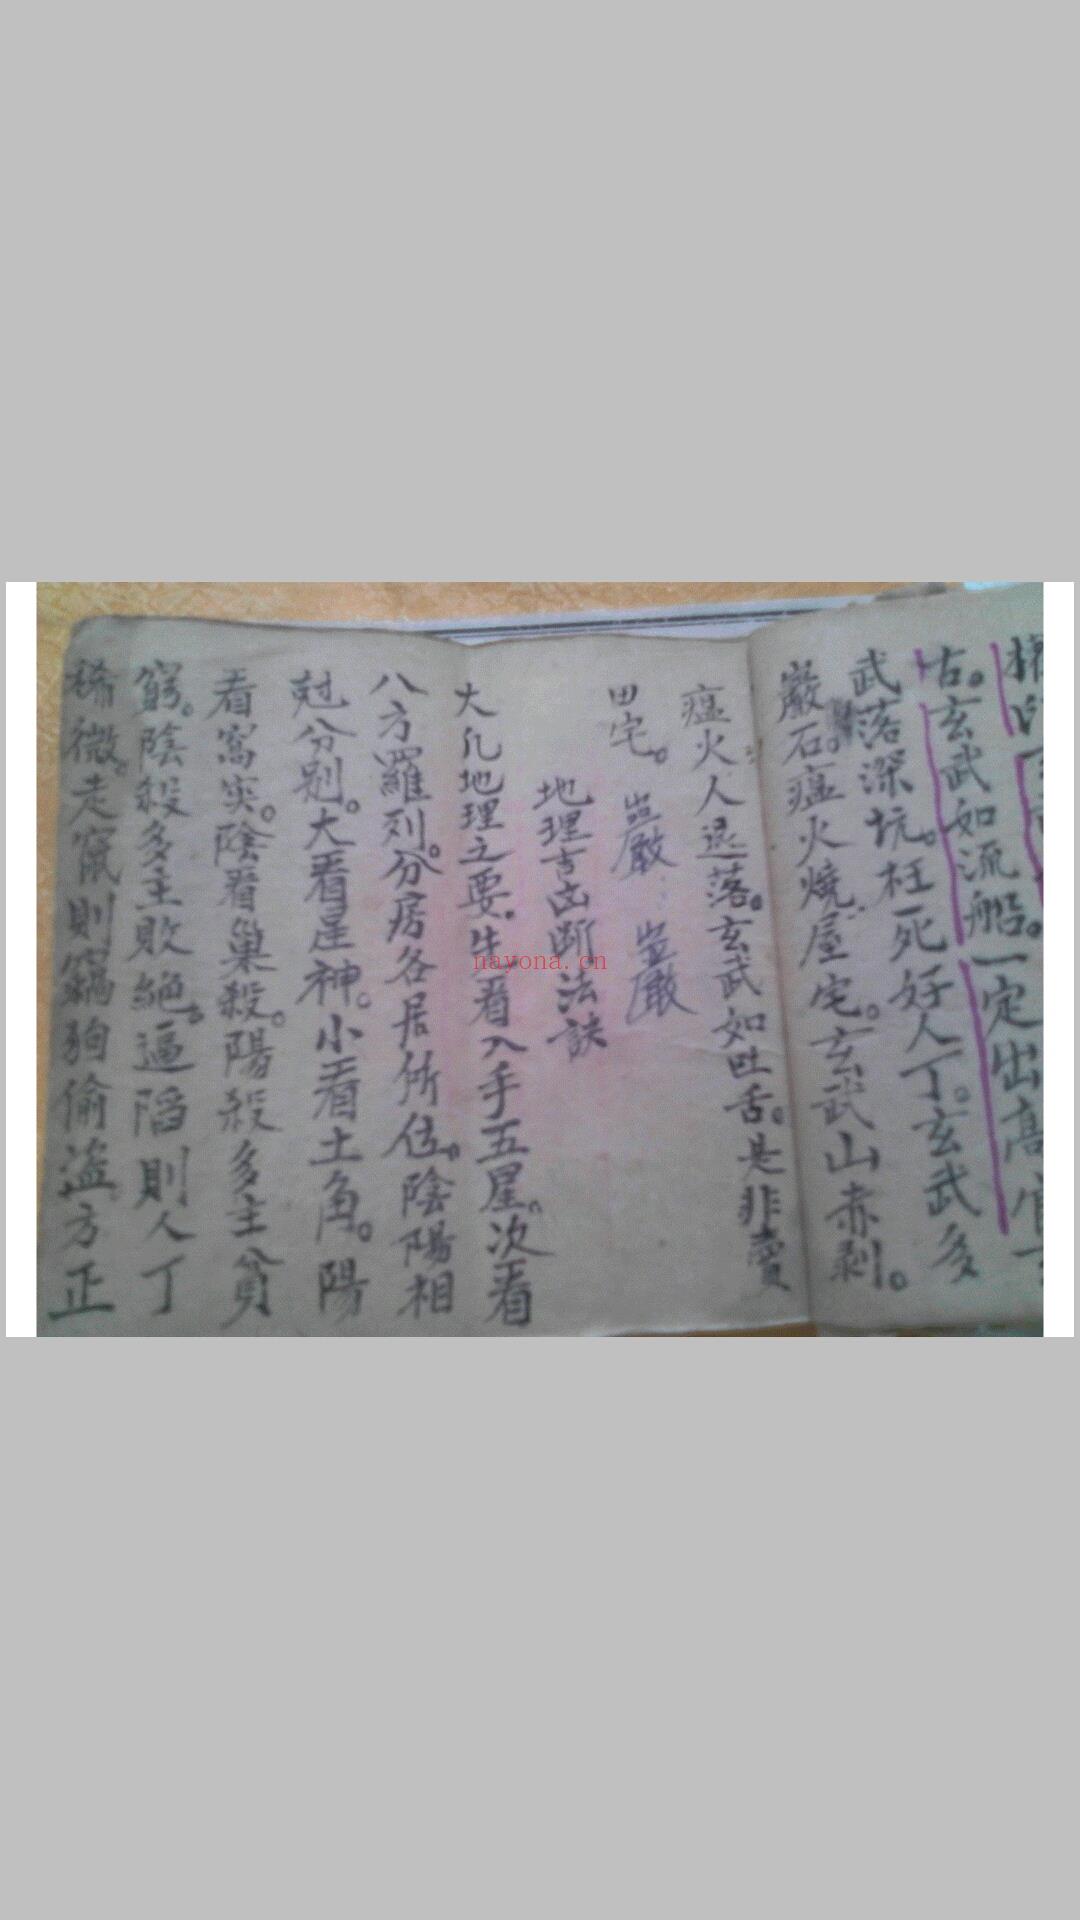 古。玄武如流船。一定出高官
武落深坑。枉死好人丁。玄武多
巖石。瘟火燒屋宅。玄武山赤剥。
瘟火人退落。玄武如吐舌。是非賣
田宅。
地理吉凶断法訣
大凡地理之要。先看入手五星。次看
八方羅列。分房各居所位。陰陽相
尅分别。大看星神。小看土角。陽
看窩突。陰看巢殺。陽殺多主貧
窮。陰殺多主敗絕。逼陷則人丁
稀微。走竄則竊狗偷盜。方正
nayona.cn